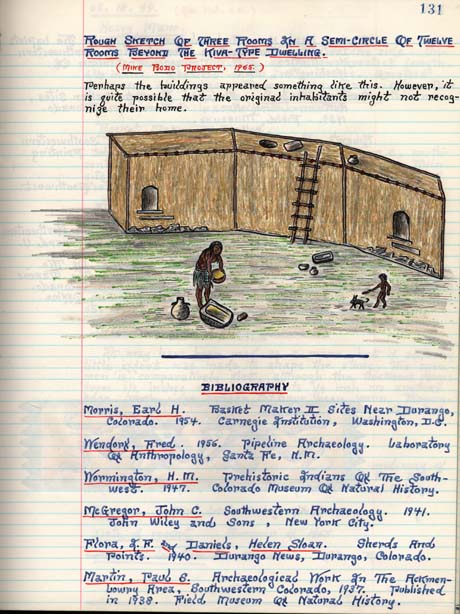 131
Rough Sketch Of Three Rooms In A Semi-Circle Of Twelve
Rooms Beyond The Kiva-Type Dwelling.
(Mike Bodo Project, 1965.)
Perhaps the buildings appeared something like this. However, it
is quite possible that the original inhabitants might not recog-
nize their home.
BIBLIOGRAPHY
Morris, Earl H. Basket Maker II Sites Near Durango,
Colorado. 1954. Carnegie Institution, Washington, D.C.
Wendorf, Fred. 1956. Pipeline Archaeology. Laboratory
Of Anthropology, Santa Fe, N.M.
Wormington, H.M. Prehistoric Indians Of The South-
west. 1947. Colorado Museum Of Natural History.
McGregor, John C. Southwestern Archaeology. 1941.
John Wiley and Sons, New York City.
Flora, I.F. & Daniels, Helen Sloan. Sherds And
Points. 1940. Durango News, Durango, Colorado.
Martin, Paul S. Archaeological Work In The Ackmen-
Lowry Area, Southwestern Colorado, 1937. Published
in 1938. Field Museum Of Natural History.